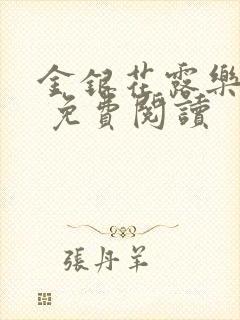 金銀花露樂
免費閱讀
張丹羊